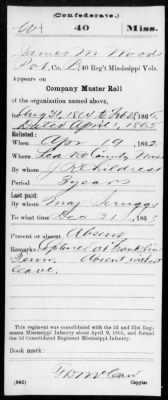 (Confederate.)
W 40 Miss.
James M Woods
Pvt, Co. B, 40 Reg't Mississippi Vols.
Appears on
Company Muster Roll
of the organization named above,
for Aug 31, 1864 to Feb 28, 1865.
Dated April 1, 1865
Enlisted:
When Apr 19, 1862
Where Leake County Miss
By whom J R Childress
Period 3 years
Last paid:
By whom Maj Scruggs
To what time Dec 31, 1863
Present or absent Absent
Remarks: Captured at Franklin
Tenn. Absent without
leave.
This regiment was consolidated with the 3d and 31st Regiments
Mississippi Infantry about April 9, 1865, and formed
the 3d Consolidated Regiment Mississippi Infantry.
Book mark:
(642) Copyist.